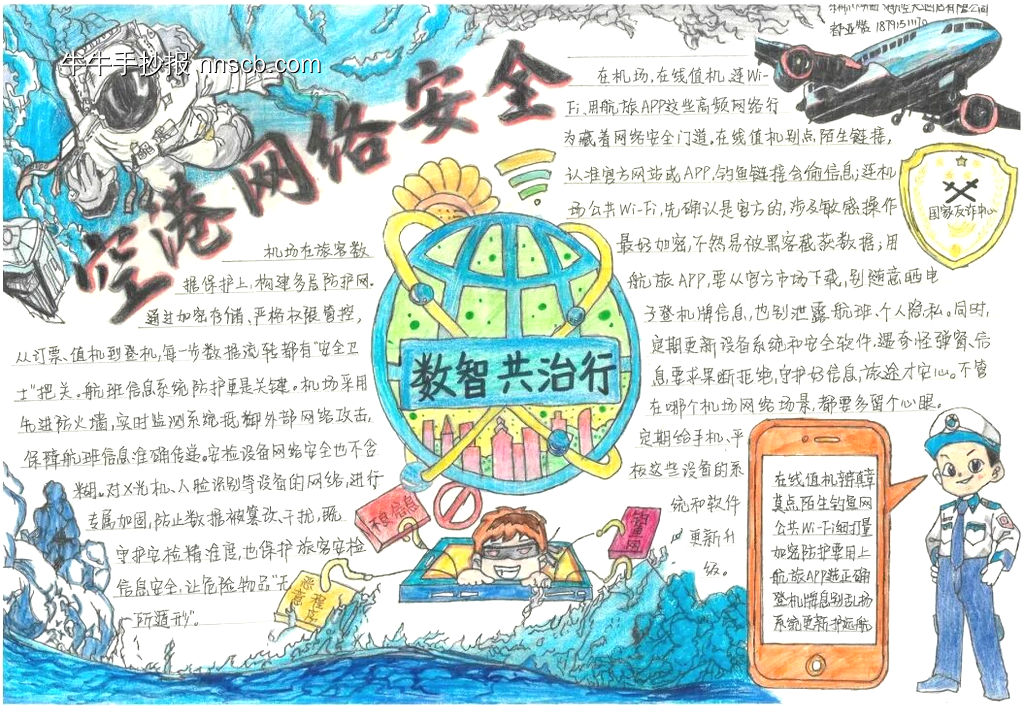 牛牛手抄报 nnscb.com
空港网络安全
机场在旅客数
据保护上,构建多层防护网。
通过加密存储、严格权限管控,
从订票、值机到登机,每一步数据流转都有“安全卫
士”把关。航班信息系统防护更是关键。机场采用
先进防火墙,实时监测系统抵御外部网络攻击,
保障航班信息准确传递。安检设备网络安全也不含
糊。对X光机、人脸识别等设备的网络,进行
专属加固,防止数据被篡改、干扰,既
守护安检精准度,也保护旅客安检
信息安全,让危险物品“无
所遁形”。
在机场,在线值机、连Wi-
Fi、用航旅APP这些高频网络行
为藏着网络安全门道。在线值机别点陌生链接,
认准官方网站或APP,钓鱼链接会偷信息;连机
场公共Wi-Fi,先确认是官方的,涉及敏感操作
最好加密,不然易被黑客截获数据;用
航旅APP,要从官方市场下载,别随意晒电
子登机牌信息,也别泄露航班、个人隐私。同时,
定期更新设备系统和安全软件,遇奇怪弹窗、信
息要求果断拒绝,守护好信息,旅途才安心。不管
在哪个机场网络场景,都要多留个心眼。
定期给手机、平
板这些设备的系
统和软件
更新升
级。
国家反诈中心
数智共治行
不良信息
钓鱼网
恶意程序
在线值机辩肆
莫点陌生钓鱼网
公共Wi-Fi细打量
加密防护要用上
航旅APP选正确
登机牌息别乱扬
系统更新护远航